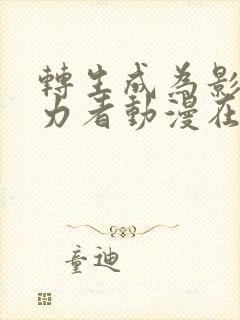 轉生成為影
力者動漫在
童迪